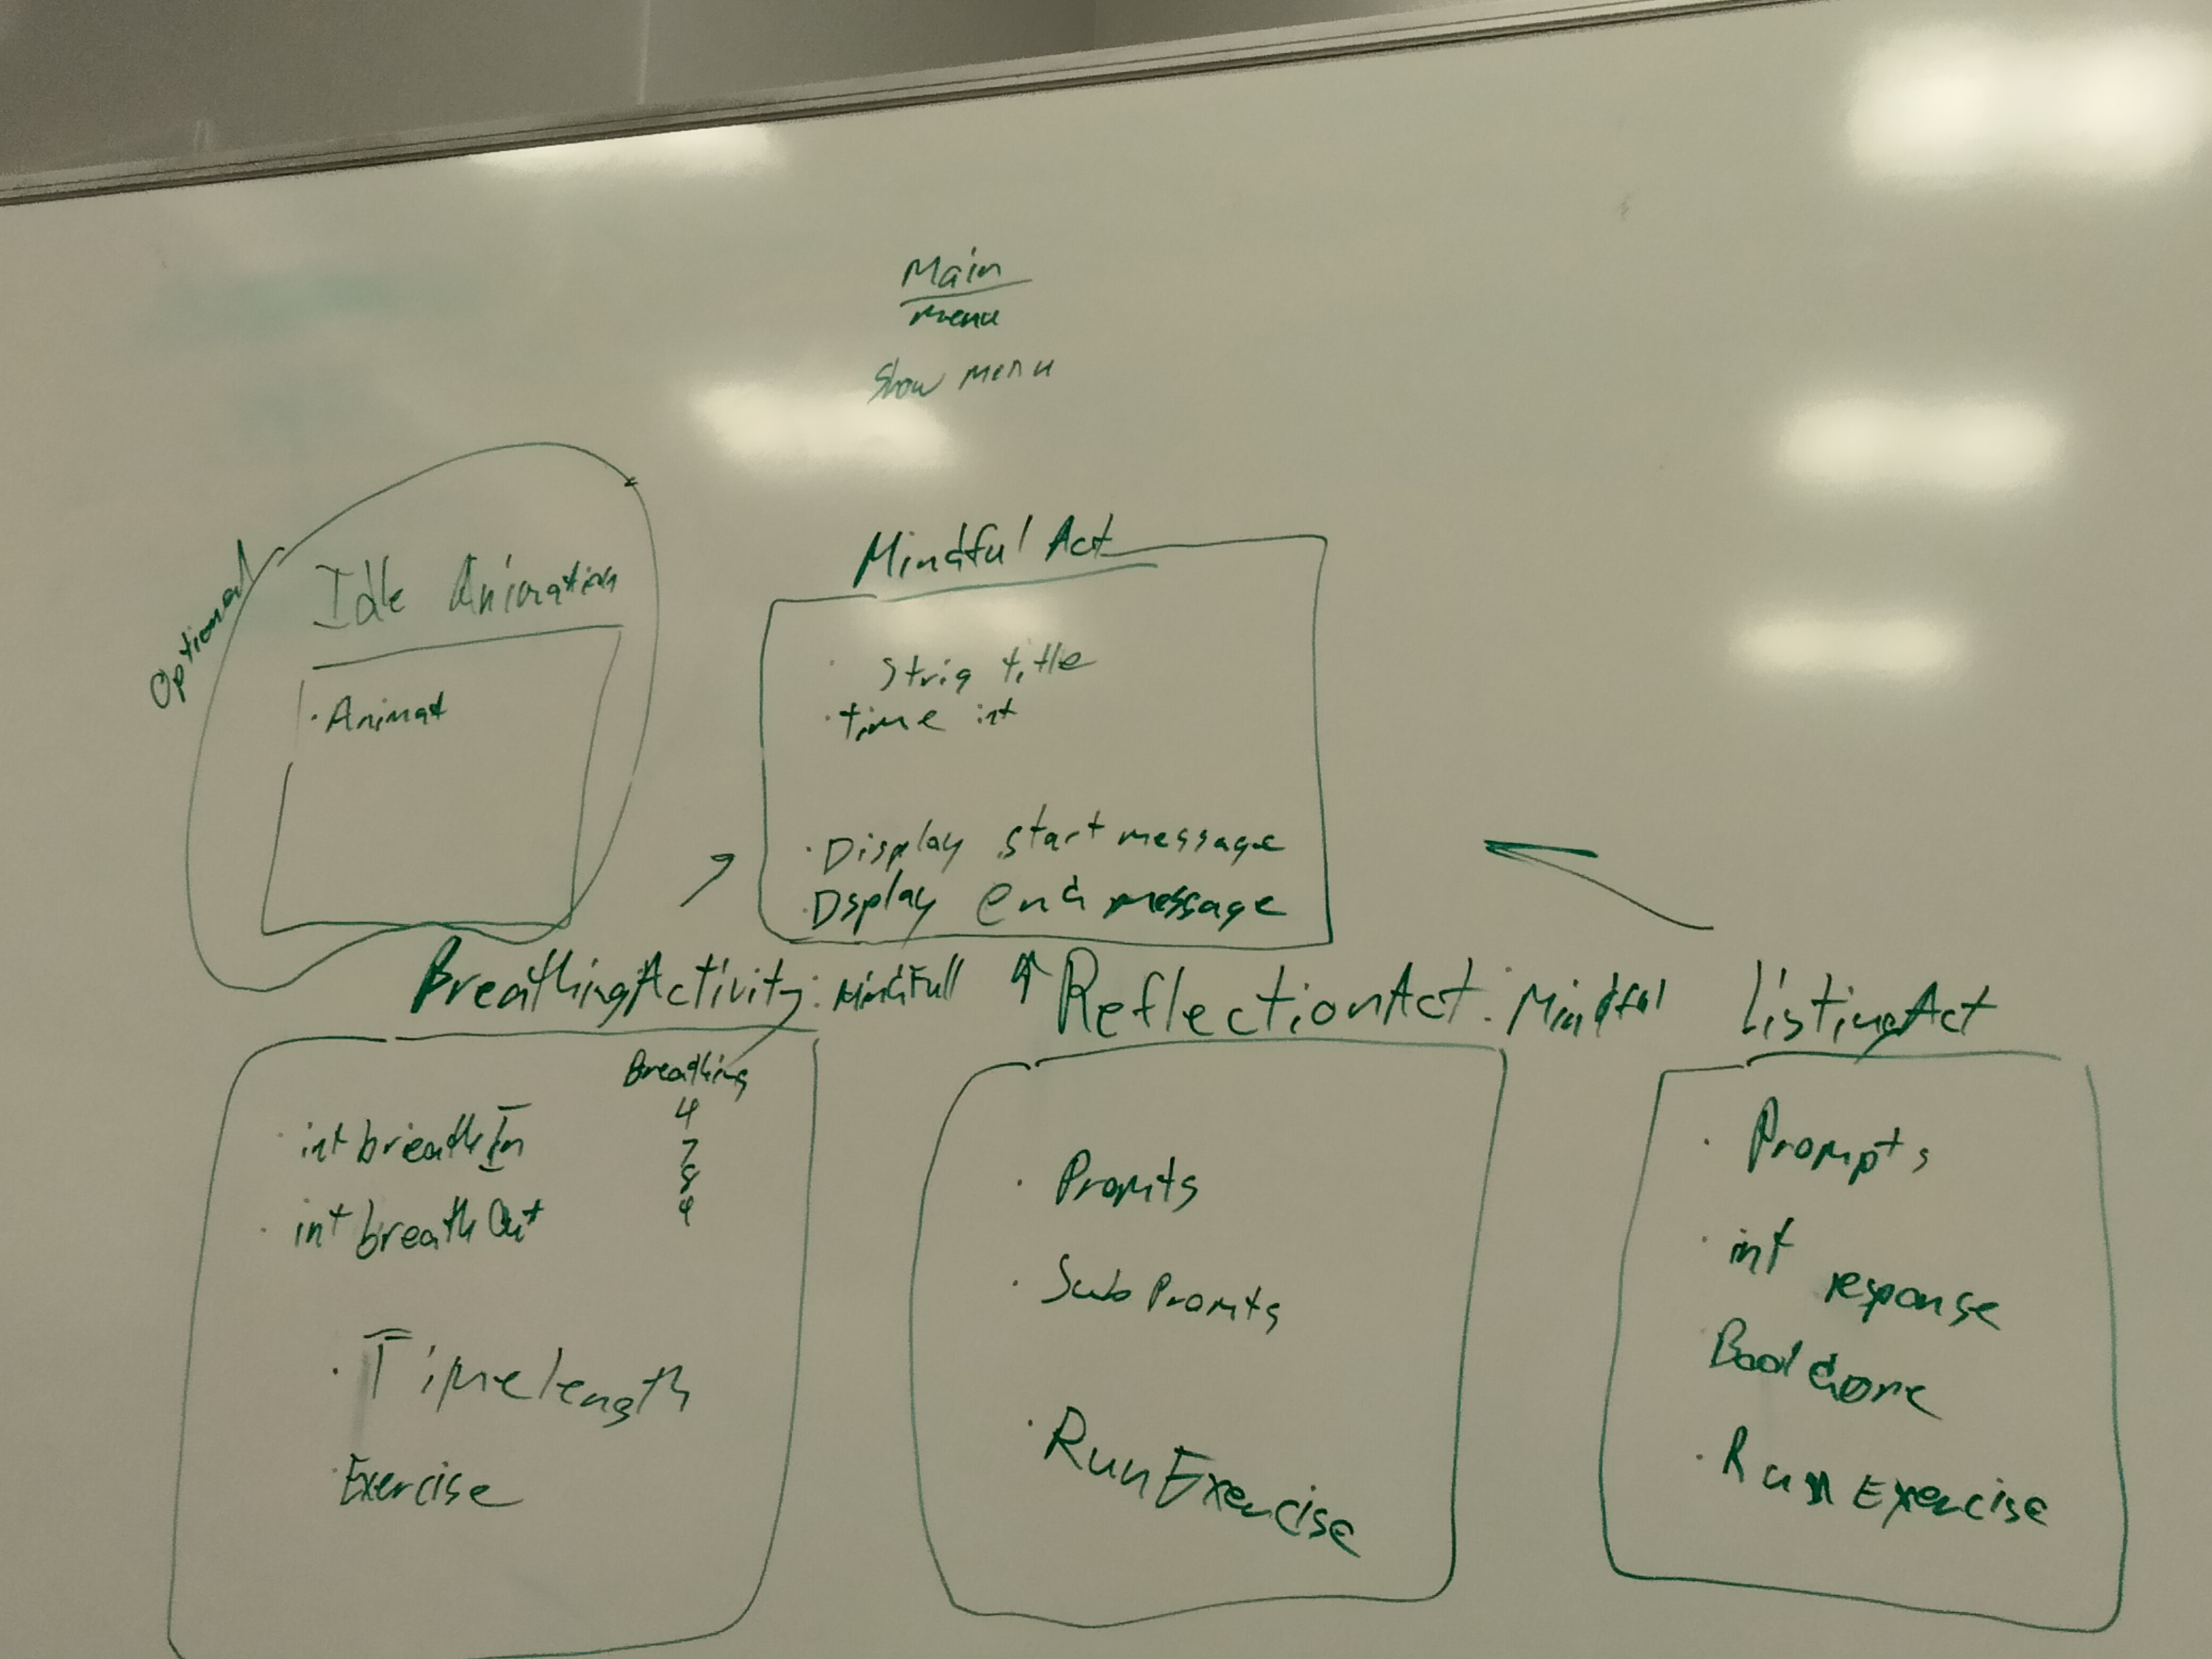 Main
menu
Show menu
Optional
Idle Animation
· Animat
Mindful Act
· Strig title
· time int
· Display start message
· Dsplay end message
BreathingActivity: Mindfull
Breathing
4
7
8
4
· int breathIn
· int breathOut
· Timelength
· Exercise
ReflectionAct: Mindful
· Promts
· SubPromts
· RunExercise
listingAct
· Prompts
· int response
Bool done
· Run Exercise